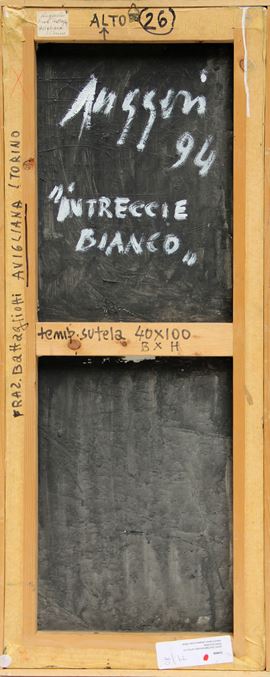 ALTO (26)
Ruggeri
94
"INTRECCIE
BIANCO"
temp. sutela 40X100
B x H
FRAZ. Battagliotti AVIGLIANA (TORINO